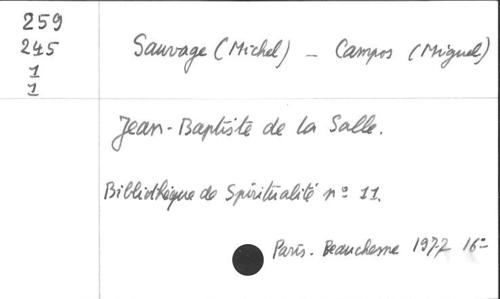 259
245
1
1
Sauvage (Michel) - Campos (Miguel)
Jean-Baptiste de la Salle.
Bibliothèque de Spiritualité nº 11.
Paris. Beauchesne 1977 16º